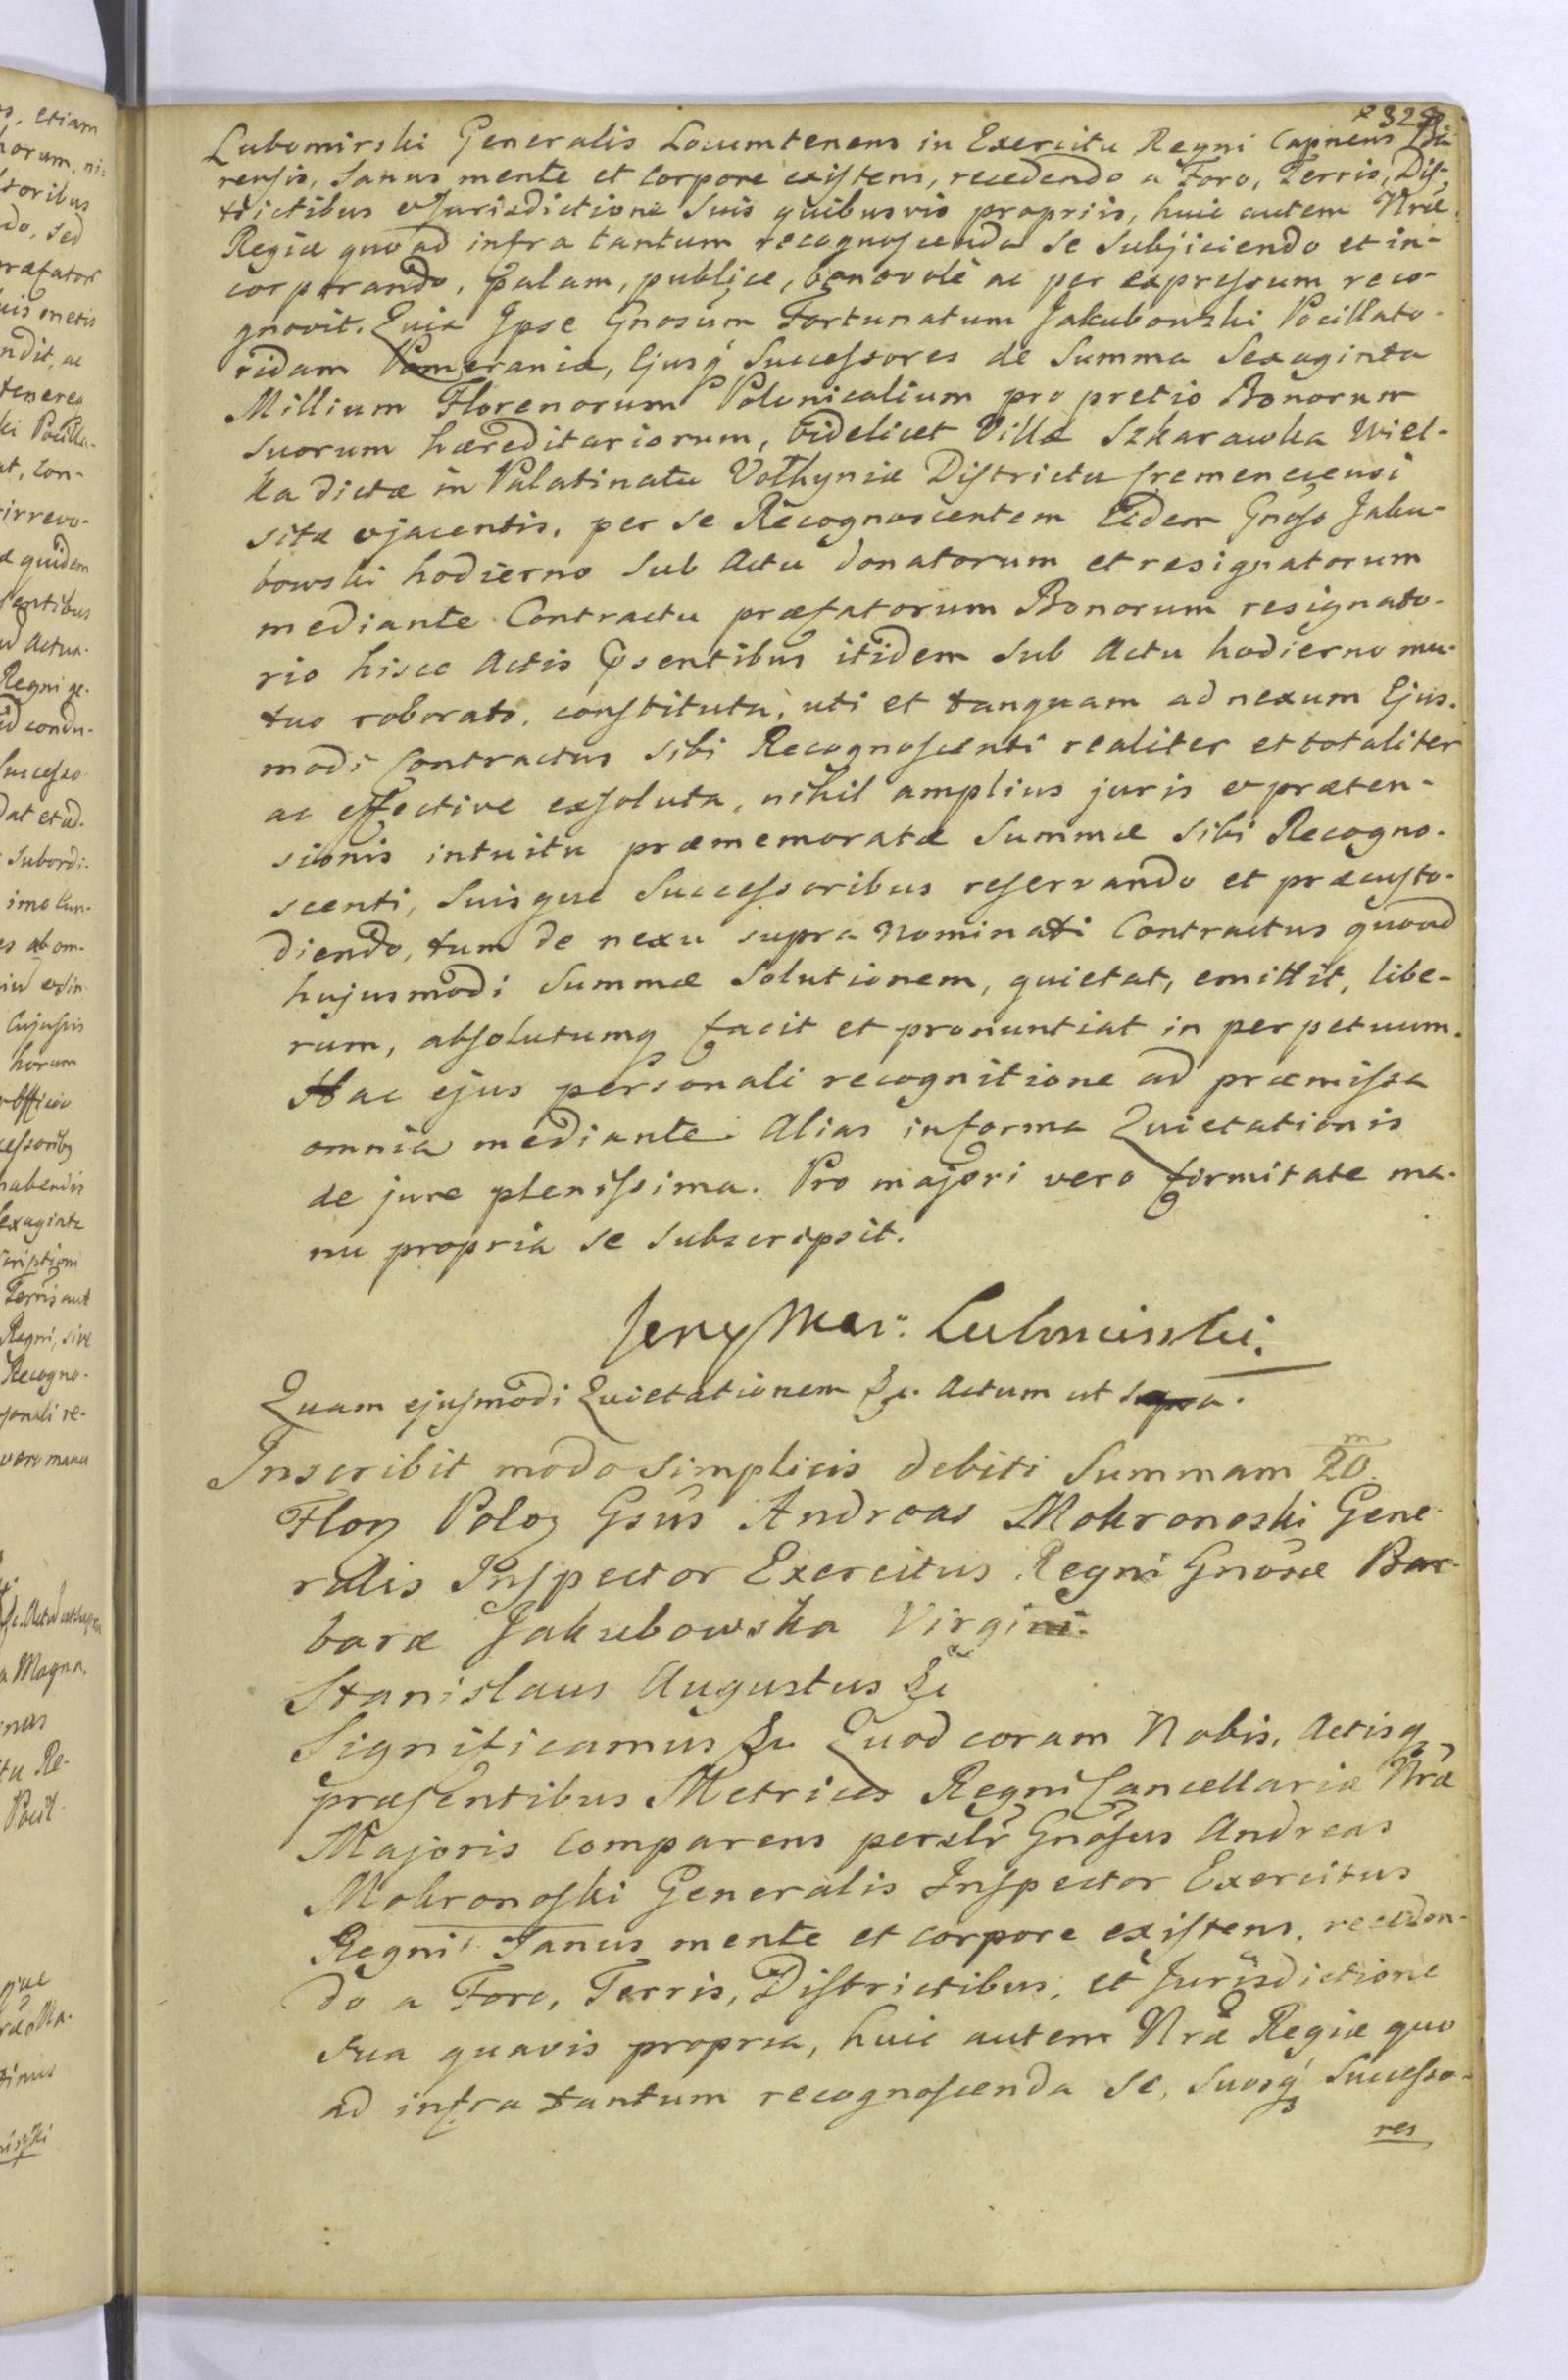 328
Lubomirski Generalis Locumtenens in Exercitu Regni Capneus Bie-
rensis, Sanus mente et corpore existens, recedendo a Foro, Terris, Dis-
trictibus et Jurisdictione suis quibusvis propriis, huic autem Nrae
Regiae quo ad infra tantum recognoscenda se subjiciendo et in-
corporando, palam, publice, benevole ac per expressum reco-
gnovit. Quia Ipse Gnosum Fortunatum Jakubowski Pocillato-
ridam Pomeraniae, Ejusq Successores de Summa Sexaginta
Millium Florenorum Polonicalium pro pretio Bonorum
suorum haereditariorum, videlicet Villae Szkarawka Wiel-
ka dictae in Palatinatu Volhyniae Districtu Cremenecensi
sitae et jacentis, per se Recognoscentem Eidem Gnoso Jaku-
bowski hodierno sub Actu donatorum et resignatorum
mediante Contractu praefatorum Bonorum resignato-
rio hisce Actis psentibus itidem sub Actu hodierno mu-
tuo roborato, constituta, uti et tanquam ad nexum Ejus-
modi Contractus sibi Recognoscenti realiter et totaliter
ac effective exsoluta, nihil amplius juris et praeten-
sionis intuitu praememoratae Summae sibi Recogno-
scenti, suisque Successoribus reservando et praecusto-
diendo, tum de nexu supra nominati Contractus quoad
hujusmodi Summae Solutionem, quietat, emittit, libe-
rum, absolutumq facit et pronuntiat in perpetuum.
Hac ejus personali recognitione ad praemissa
omnia mediante. Alias in forma Quietationis
de jure plenissima. Pro majori vero firmitate ma-
nu propria se subscripsit.
Jerzy Mar: Lubomirski.
Quam ejusmodi Quietationem &c. Actum ut supra.
Inscribit modo simplicis debiti Summam 20 m
Flor Polo Gsus Andreas Mokronoski Gene-
ralis Inspector Exercitus Regni Gnosae Bar-
barae Jakubowska Virgini.
Stanislaus Augustus &c
Significamus &c Quod coram Nobis, Actisq
praesentibus Metrices Regni Cancellariae Nrae
Majoris comparens perslr Gnosus Andreas
Mokronoski Generalis Inspector Exercitus
Regni Sanus mente et corpore existens, receden-
do a Foro, Terris, Districtibus, et Jurisdictione
sua quavis propria, huic autem Nrae Regiae quo
ad infra tantum recognoscenda se, suosq Successo-
res